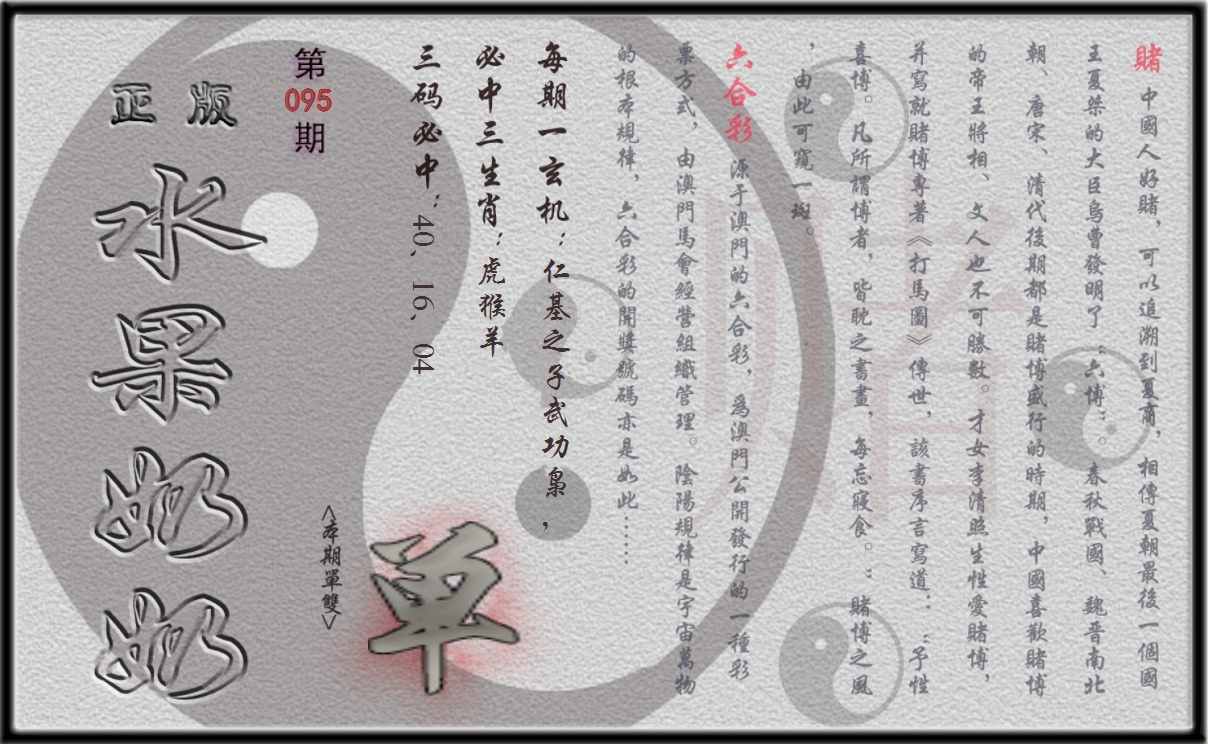 賭 中國人好賭，可以追溯到夏商，相傳夏朝最後一個國
王夏桀的大臣烏曹發明了“六博”。春秋戰國、魏晉南北
朝、唐宋、清代後期都是賭博盛行的時期，中國喜歡賭博
的帝王將相、文人也不可勝數。才女李清照生性愛賭博，
并寫就賭博專著《打馬圖》傳世，該書序言寫道：“予性
喜博。凡所謂博者，皆耽之書畫，每忘寢食。：賭博之風
，由此可窺一斑。
六合彩 源于澳門的六合彩，為澳門公開發行的一種彩
票方式，由澳門馬會經營組織管理。陰陽規律是宇宙萬物
的根本規律，六合彩的開獎號碼亦是如此……
每期一玄机：仁基之子武功梟，
必中三生肖：虎猴羊
三码必中：40、16、04
單
<本期單雙>
第
095
期
正版
水果奶奶
賭